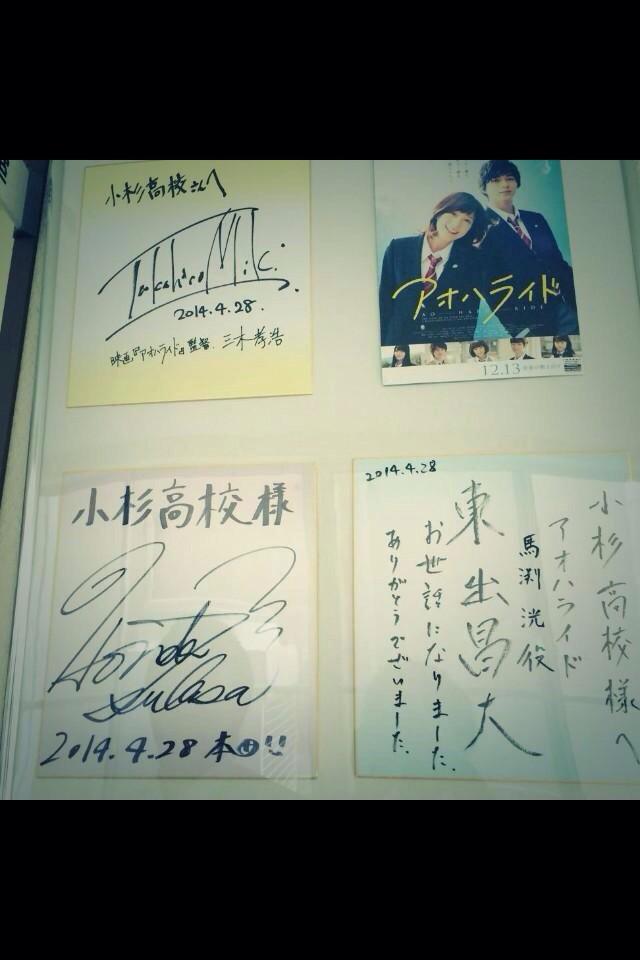 小杉高校さんへ
Takahiro Miki.
2014.4.28.
映画『アオハライド』監督 三木孝浩
アオハライド
AO HA RIDE
12.13
小杉高校様
Honda Tsubasa
2014.4.28 本田
2014.4.28
小杉高校様へ
アオハライド
馬渕洸役
東出昌大
お世話になりました。
ありがとうございました。